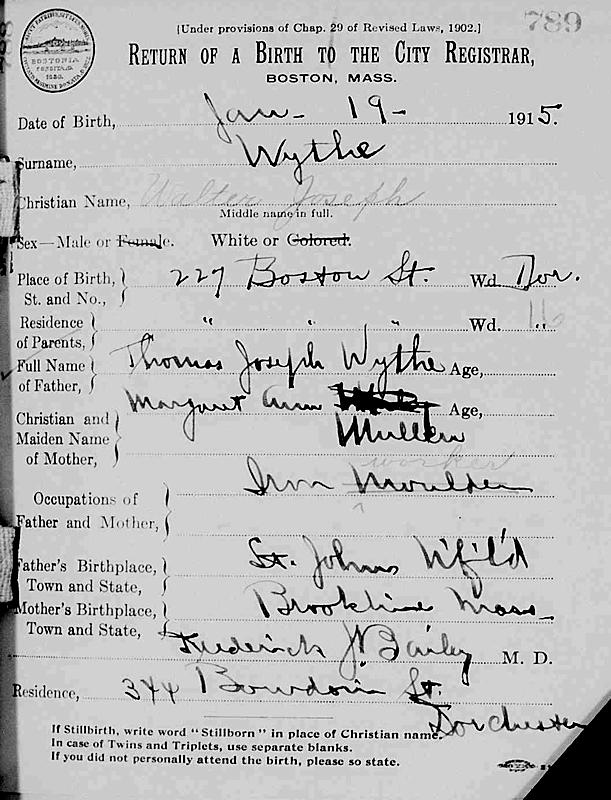 789
[Under provisions of Chap. 29 of Revised Laws, 1902.]
RETURN OF A BIRTH TO THE CITY REGISTRAR,
BOSTON, MASS.
BOSTONIA
Date of Birth, Jan - 19 - 1915.
Surname, Wythe
Christian Name, Walter Joseph
Middle name in full.
Sex—Male or Female. White or Colored.
Place of Birth, St. and No., 227 Boston St. Wd. Dor.
Residence of Parents, " " " Wd. 16
Full Name of Father, Thomas Joseph Wythe Age,
Christian and Maiden Name of Mother, Margaret Ann Age,
Mullen
worker
Occupations of Father and Mother, Iron Moulder
Father's Birthplace, Town and State, St. Johns N'f'l'd
Mother's Birthplace, Town and State, Brookline Mass
Frederick J. Bailey M. D.
Residence, 344 Bowdoin St.
Dorchester
If Stillbirth, write word "Stillborn" in place of Christian name.
In case of Twins and Triplets, use separate blanks.
If you did not personally attend the birth, please so state.